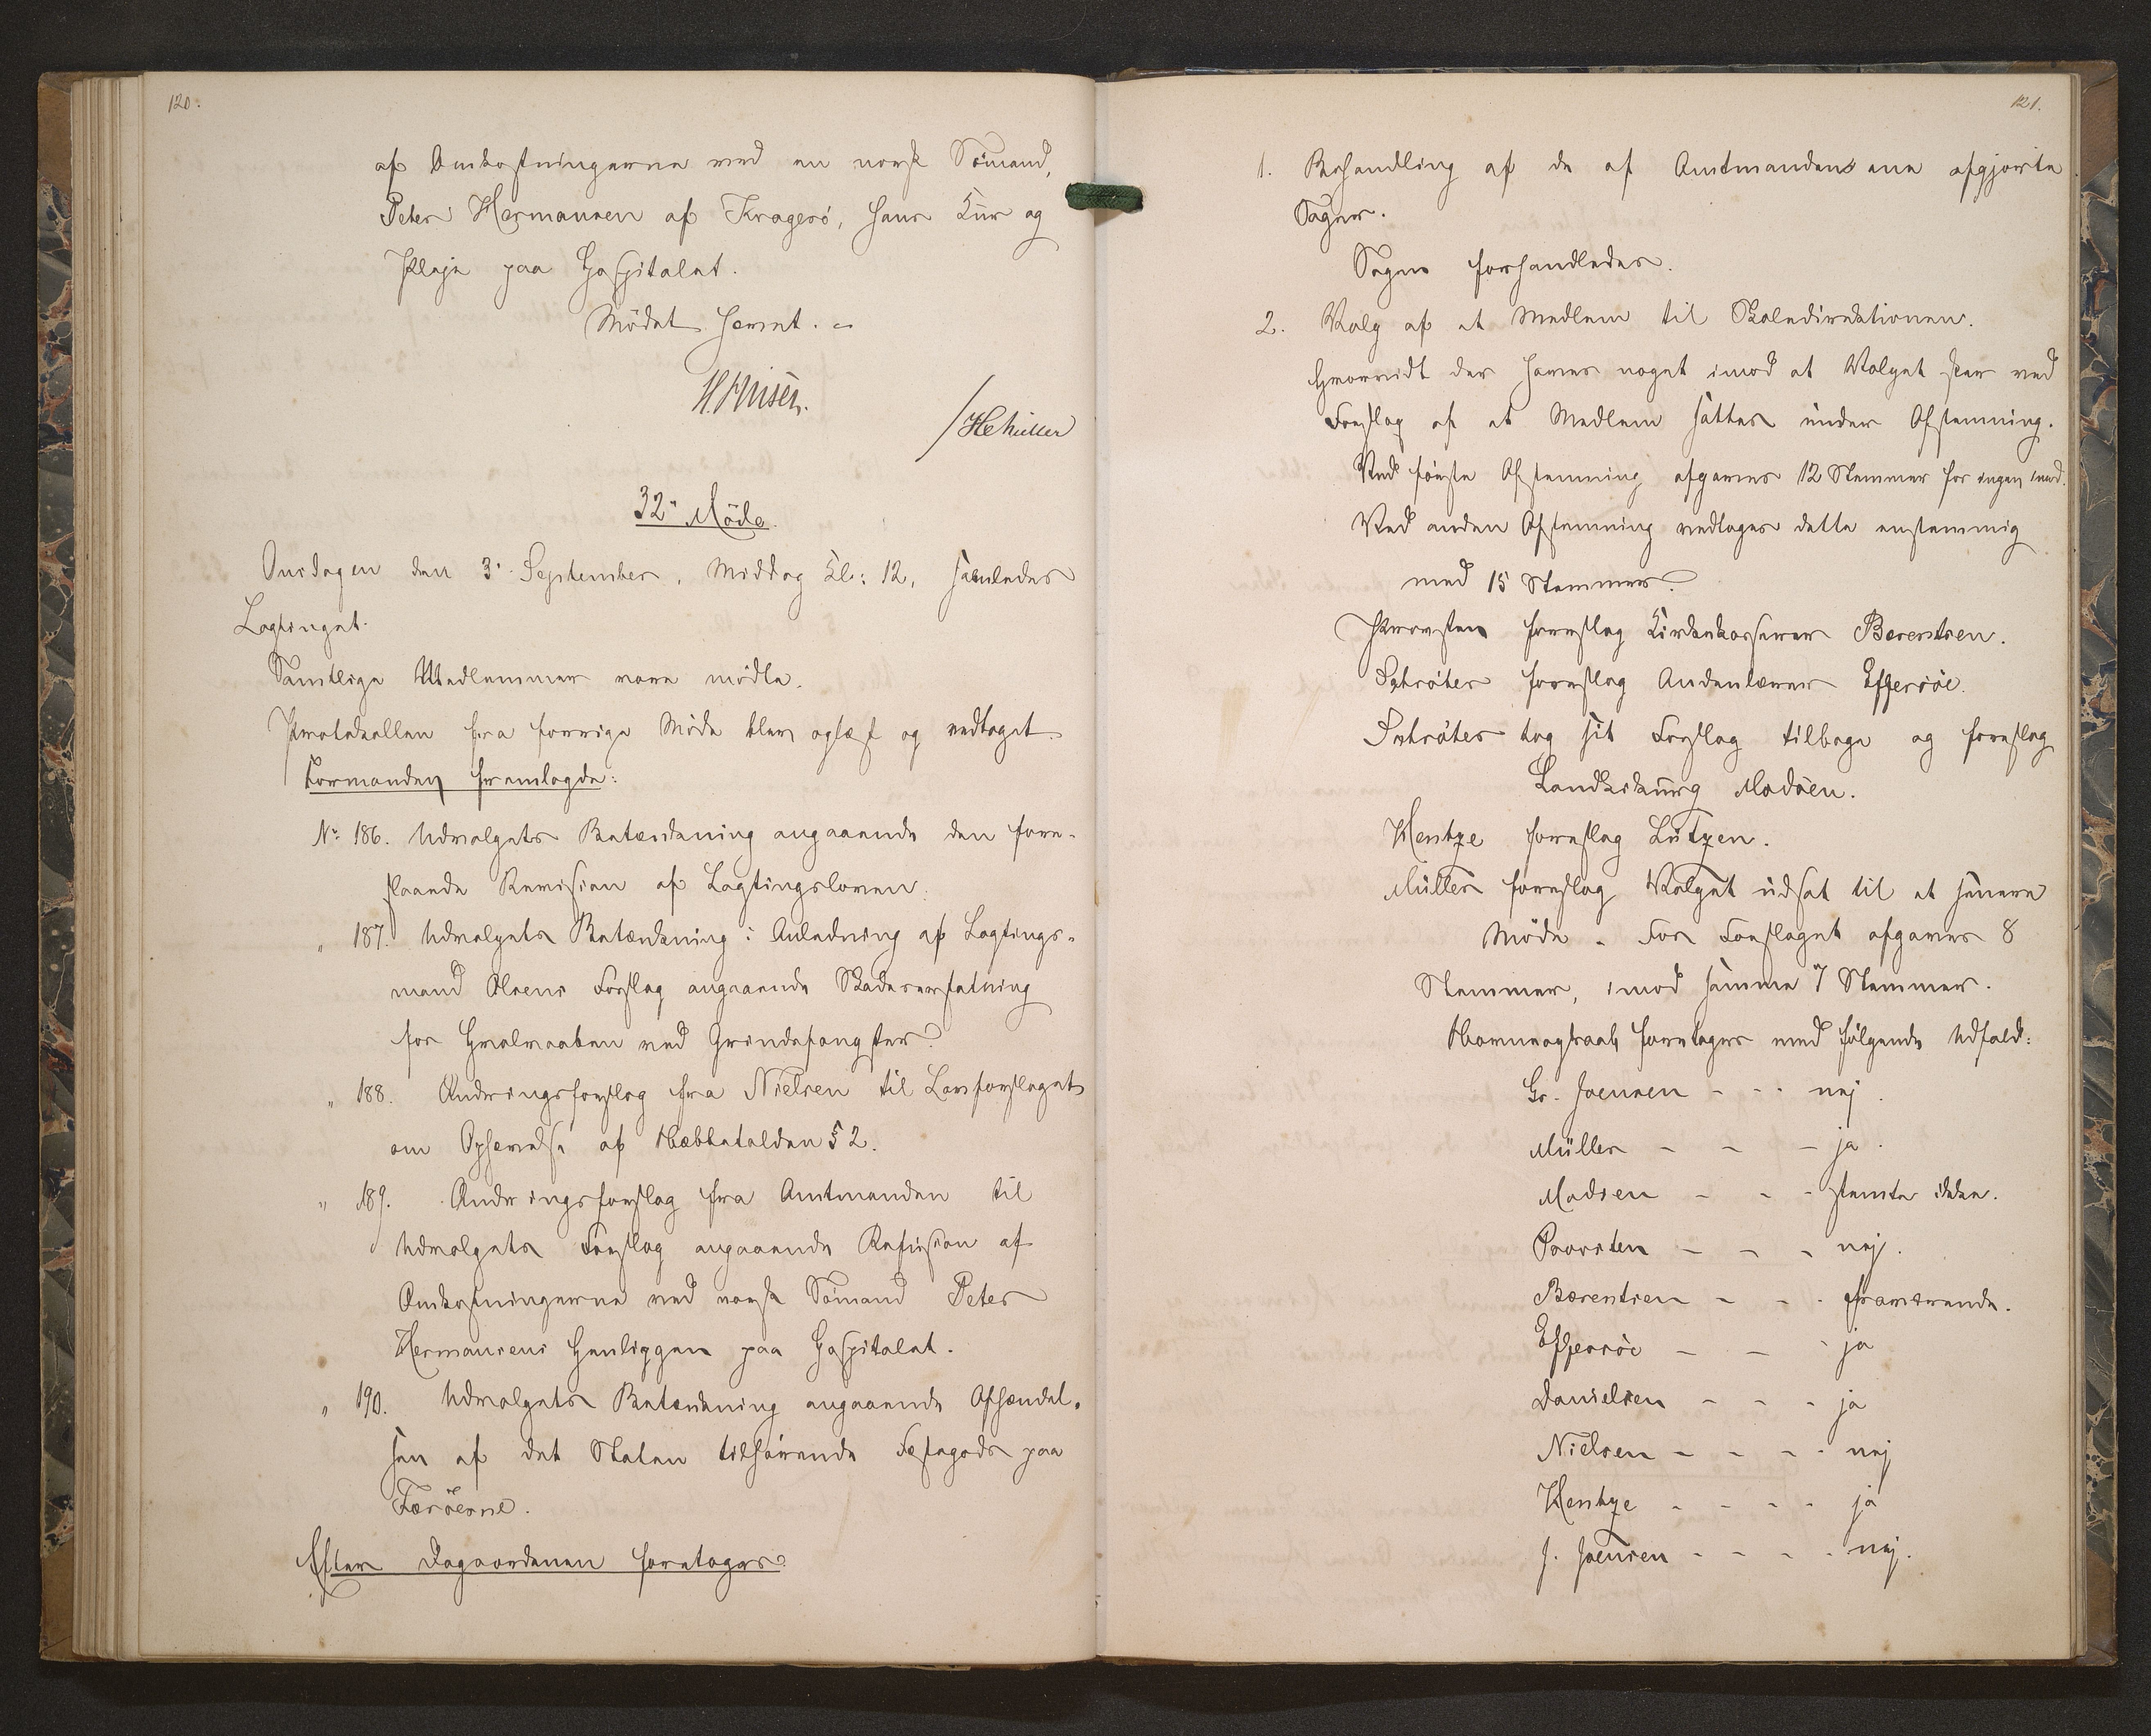 120.
af Omkostningerne ved en norsk Sömand,
Peter Hermansen af Kragerö, hans Kur og
Pleje paa Hospitalet.
Mödet hævet. –
32te Möde.
Onsdagen den 3. September, Middag Kl: 12, samledes
Lagtinget.
Samtlige Medlemmer vare mödte.
Protokollen fra forrige Möde blev oplæst og vedtaget.
Formanden fremlagde:
No 186. Udvalgets Betænkning angaaende den fore-
slaaede Revision af Lagtingsloven.
" 187. Udvalgets Betænkning i Anledning af Lagtings-
mand Olsens Forslag angaaende Skadeserstatning
for Hvalvaaben ved Grindefangster.
" 188. Ændringsforslag fra Nielsen til Lovforslaget
om Ophævelse af Næbbetolden § 2.
" 189. Ændringsforslag fra Amtmanden til
Udvalgets Forslag angaaende Refusion af
Omkostningerne ved norsk Sömand Peter
Hermansens Henliggen paa Hospitalet.
" 190. Udvalgets Betænkning angaaende Afhændel-
sen af det Staten tilhörende Fæstegods paa
Færöerne.
Efter Dagsordenen foretoges:
121.
1. Behandling af de af Amtmanden ene afgjorte
Sager.
Sagen forhandledes.
2. Valg af et Medlem til Skoledirektionen.
Hvorvidt der haves noget imod at Valget sker ved
Forslag af et Medlem sattes under Afstemning.
Ved förste Afstemning afgaves 12 Stemmer for ingen imod.
Ved anden Afstemning vedtoges dette enstemmig
med 15 Stemmer.
Provsten foreslog Kirkekasserer Bærentsen.
Schröter foreslog Andenlærer Effersöe.
Schröter tog sit Forslag tilbage og foreslog
Landkirurg Madsen.
Hentze foreslog Lützen.
Müller foreslog Valget udsat til et senere
Möde. For Forslaget afgaves 8
Stemmer, imod samme 7 Stemmer.
Navneopraab foretoges med fölgende Udfald:
Gr. Joensen - - - nej.
Müller - - - ja.
Madsen - - - stemte ikke.
Provsten - - - nej.
Bærentsen - - - fraværende.
Effersöe - - - ja
Danielsen - - - ja
Nielsen - - - - nej
Hentze - - - - ja
J. Joensen - - - - nej.